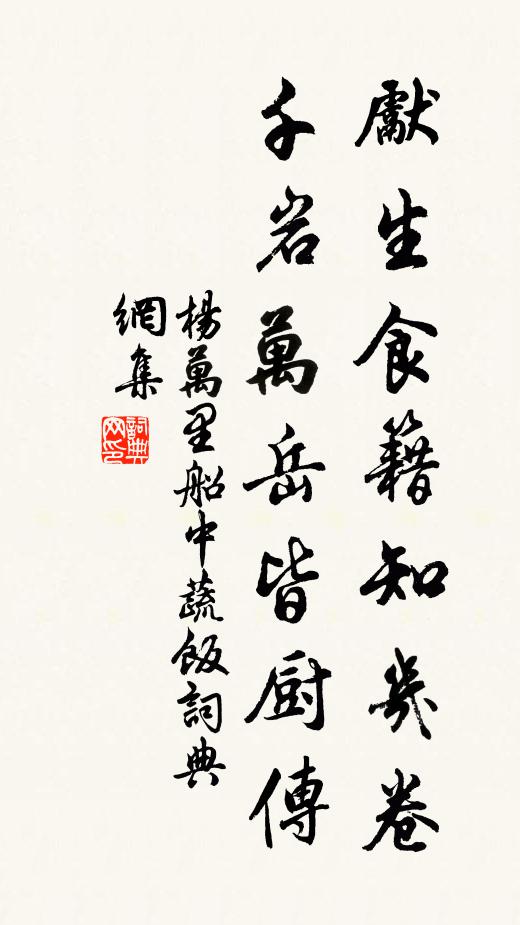 獻生食籍知幾卷
千岩萬岳皆厨傳
楊萬里船中蔬飯詞典
網集
詞典
网印